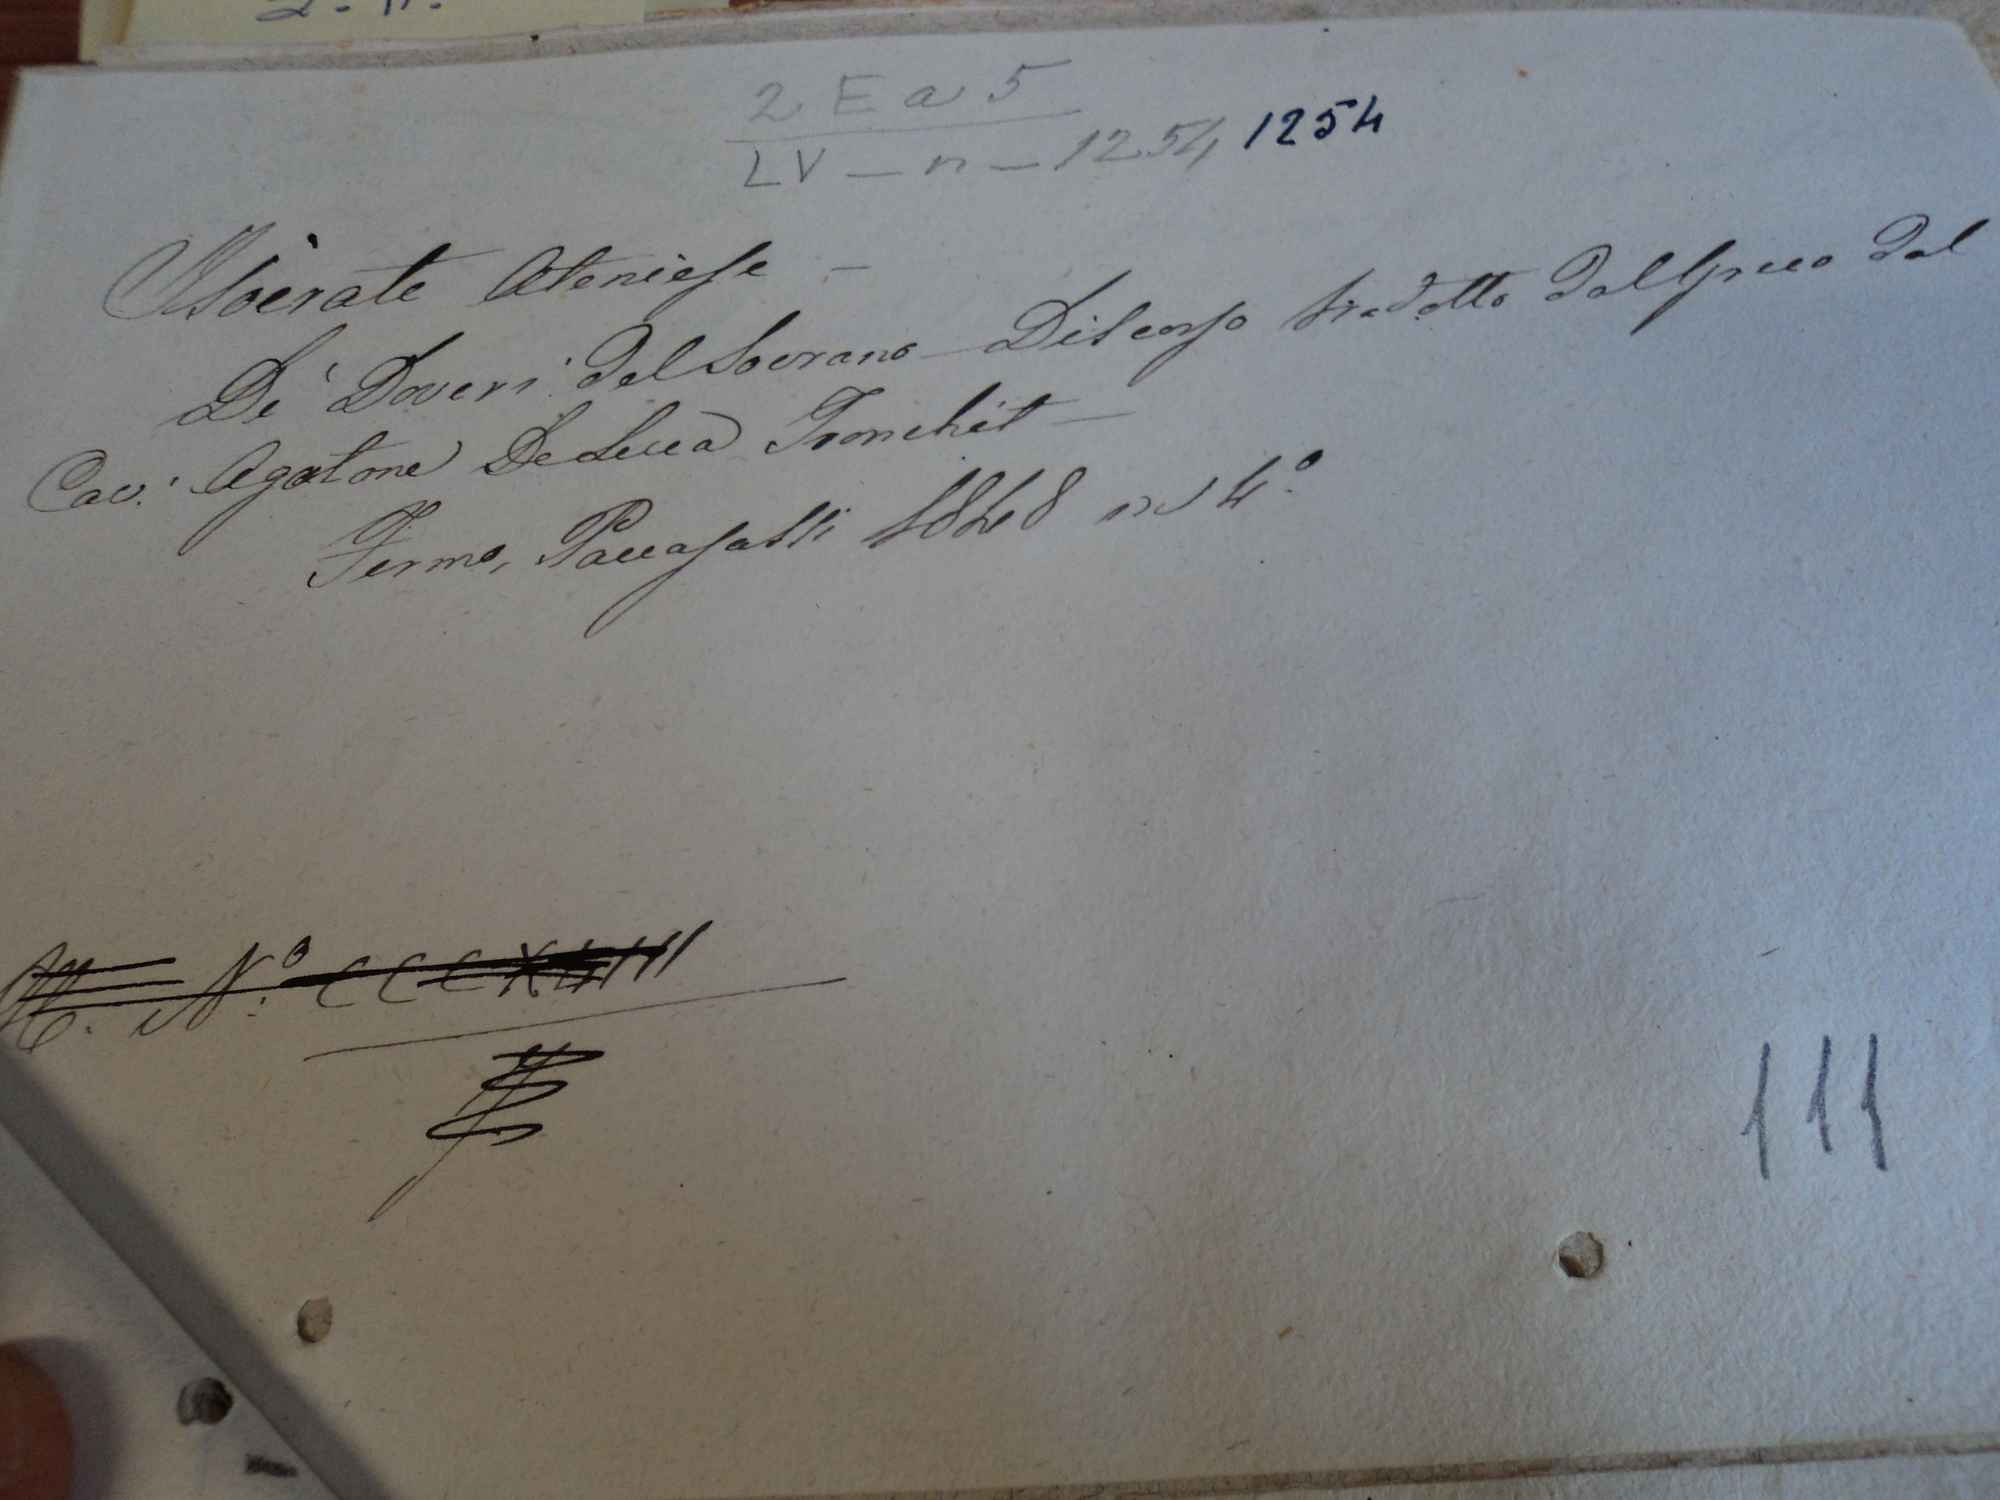 2 E a 5
LV - n - 1254 1254
Isocrate Ateniese -
De' Doveri del Sovrano - Discorso tradotto dal Greco dal
Cav: Agatone De Luca Tronchet -
Fermo, Paccasassi 1848 in 4°.
N.° CCCX
111